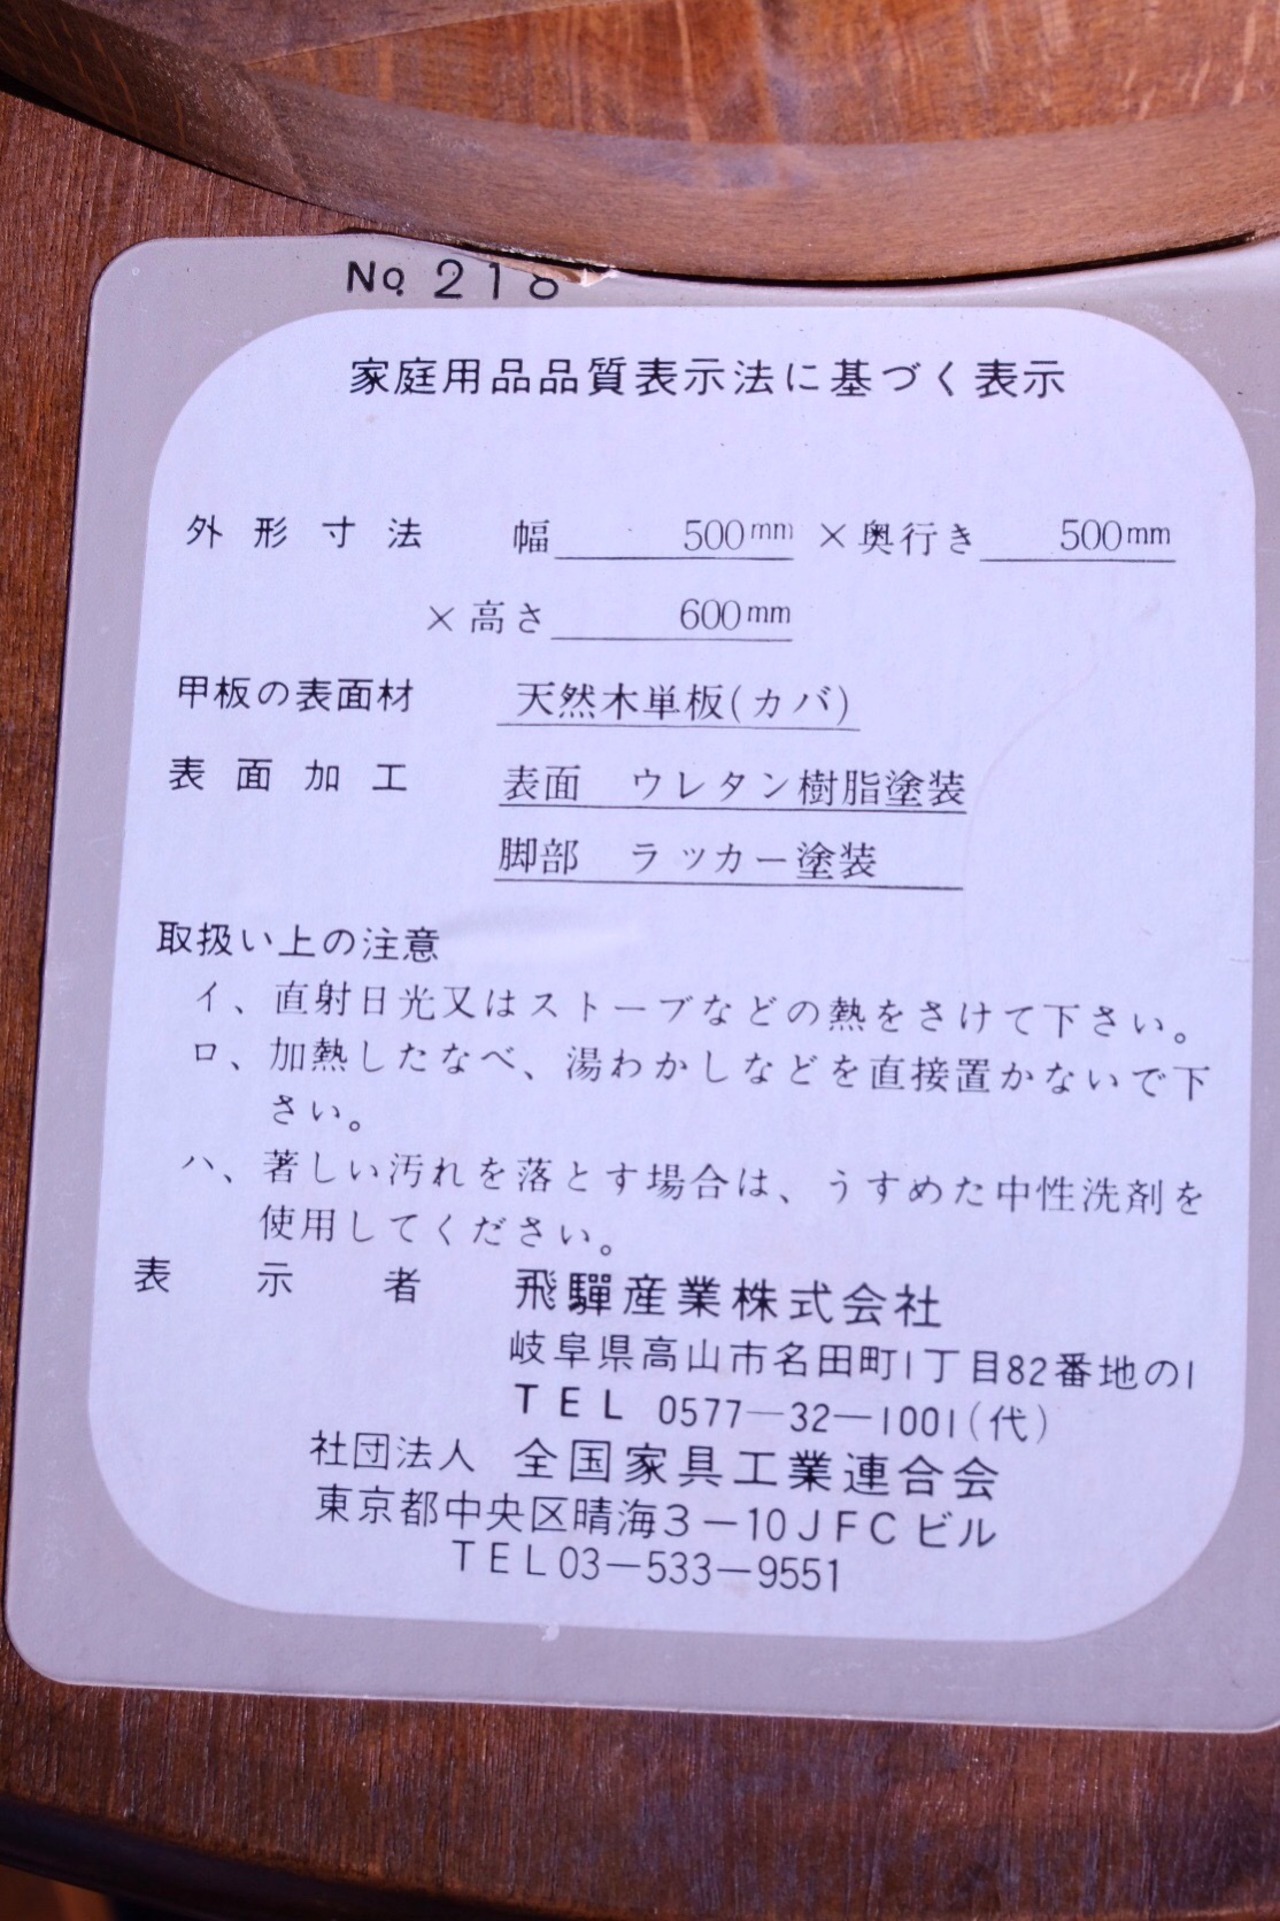 No. 218
家庭用品品質表示法に基づく表示
外形寸法 幅 500mm ×奥行き 500mm
×高さ 600mm
甲板の表面材 天然木単板(カバ)
表面加工 表面 ウレタン樹脂塗装
脚部 ラッカー塗装
取扱い上の注意
イ、直射日光又はストーブなどの熱をさけて下さい。
ロ、加熱したなべ、湯わかしなどを直接置かないで下
さい。
ハ、著しい汚れを落とす場合は、うすめた中性洗剤を
使用してください。
表示者 飛驒産業株式会社
岐阜県高山市名田町1丁目82番地の1
TEL 0577—32—1001(代)
社団法人 全国家具工業連合会
東京都中央区晴海3—10JFCビル
TEL03—533—9551